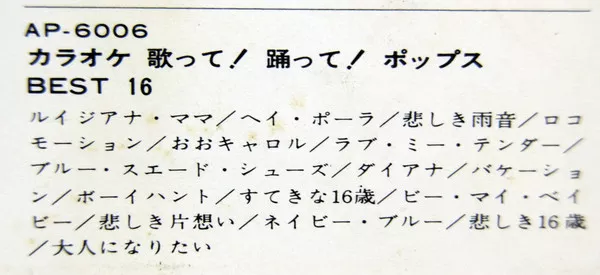 AP-6006
カラオケ 歌って! 踊って! ポップス
BEST 16
ルイジアナ・ママ/ヘイ・ポーラ/悲しき雨音/ロコ
モーション/おおキャロル/ラブ・ミー・テンダー/
ブルー・スエード・シューズ/ダイアナ/バケーショ
ン/ボーイハント/すてきな16歳/ビー・マイ・ベイ
ビー/悲しき片想い/ネイビー・ブルー/悲しき16歳
/大人になりたい